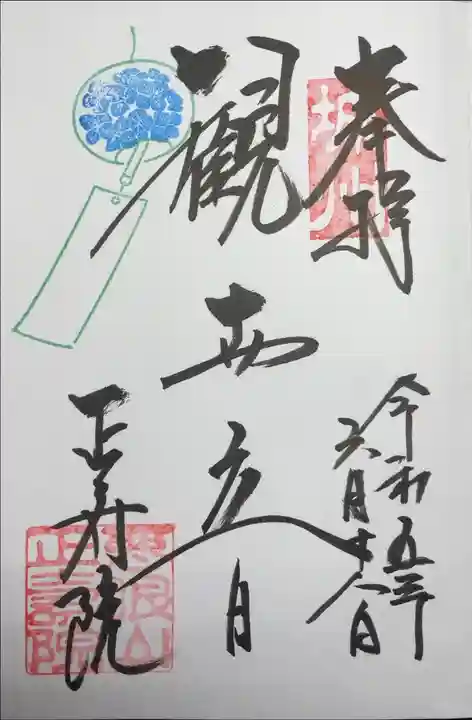 奉拝
令和五年
六月十八日
観世音
正寿院